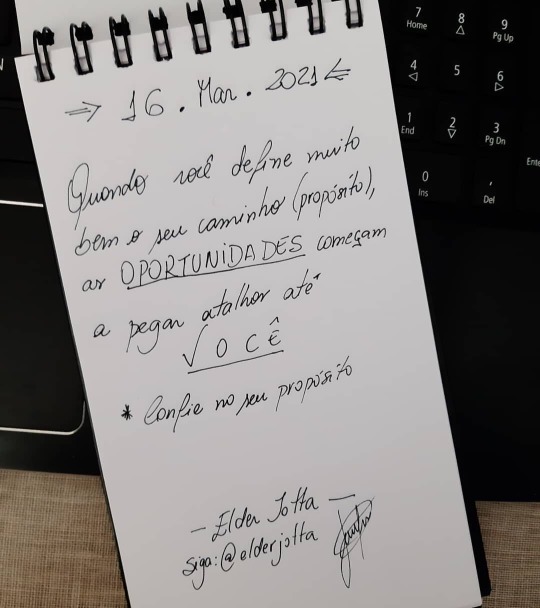 ⇒ 16 . Mar . 2021 ⇐
Quando você define muito
bem o seu caminho (propósito),
as OPORTUNIDADES começam
a pegar atalhos até
VOCÊ
* Confie no seu propósito
— Elder Jotta —
siga: @elderjotta
7 Home
8
9 Pg Up
4
5
6
1 End
2
3 Pg Dn
0 Ins
, Del